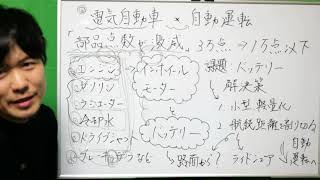 電気自動車 × 自動運転
「部品点数が激減」3万点→1万点以下
エンジン
ガソリン
ラジエーター
冷却水
ドライブシャフト
ブレーキ など
インホイール
モーター
バッテリー
課題：バッテリー
解決策
1. 小型軽量化
2. 航続距離
路面から？
ライドシェア
自動
運転へ